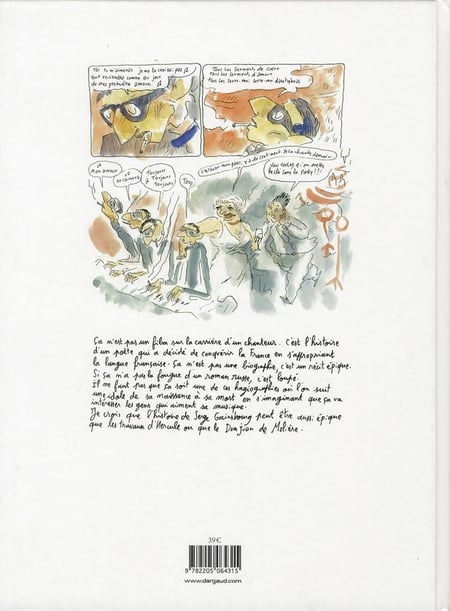 Toi tu m'aimeras je ne le crois pas
tout reviendra comme au jour
de mes premières amours
Tous les serments de cœur
Tous les serments d'amour
Tous les serre-moi serre-moi dans tes bras
Mon amour
on s'aimera
Toujours
Toujours
Toujours
Touj
C'est beau mon gars, y a du sentiment. Je la chante demain.
vous voulez qu'on mette
Ça n'est pas un film sur la carrière d'un chanteur. C'est l'histoire
d'un poète qui a décidé de conquérir la France en s'appropriant
la langue française. Ça n'est pas une biographie, c'est un récit épique.
Si ça n'a pas la fougue d'un roman russe, c'est loupé.
Il ne faut pas que ça soit une de ces hagiographies où l'on suit
une idole de sa naissance à sa mort en s'imaginant que ça va
intéresser les gens qui aiment sa musique.
Je crois que l'histoire de Serge Gainsbourg peut être aussi épique
que les travaux d'Hercule ou que le Dom Juan de Molière.
39€
9 782205 064315
www.dargaud.com